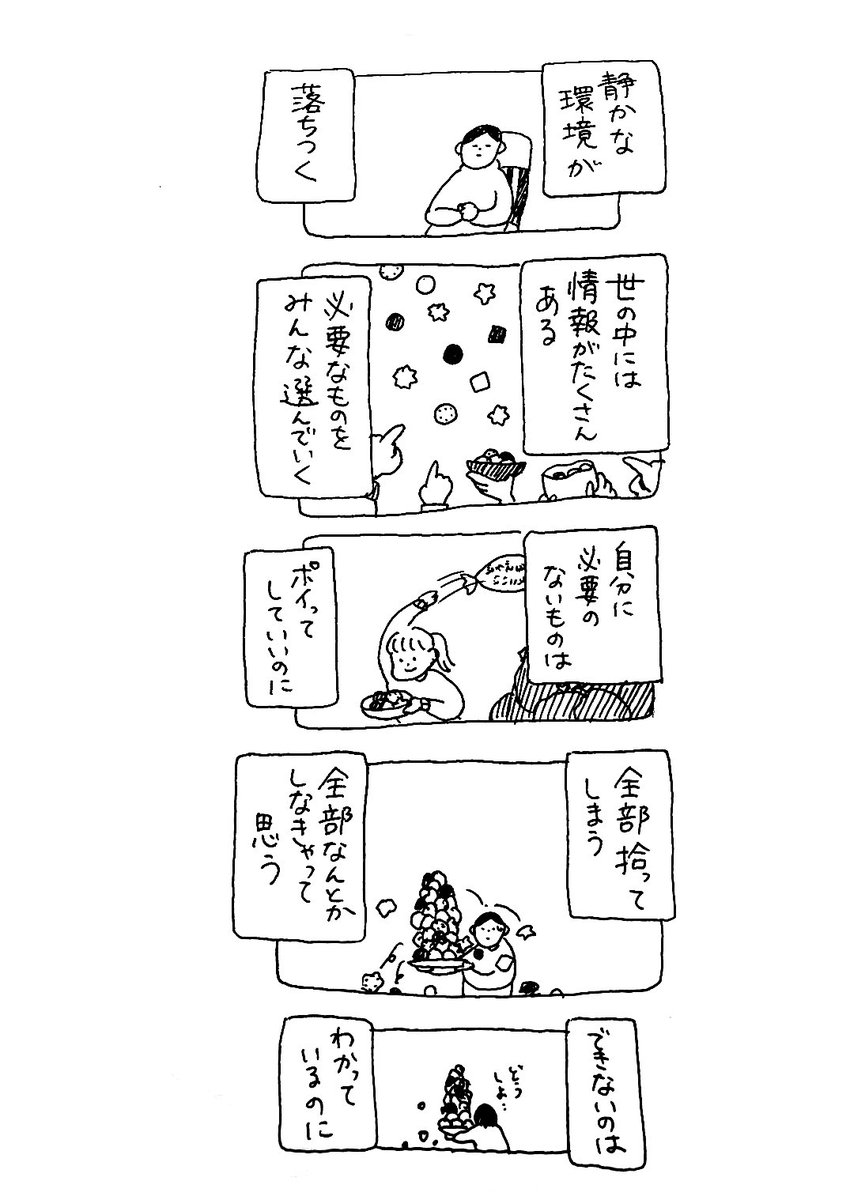 静かな
環境が
落ちつく
世の中には
情報がたくさん
ある
必要なものを
みんな選んでいく
自分に
必要の
ないものは
ポイって
していいのに
全部拾って
しまう
全部なんとか
しなきゃって
思う
できないのは
どう
しよ…
わかって
いるのに